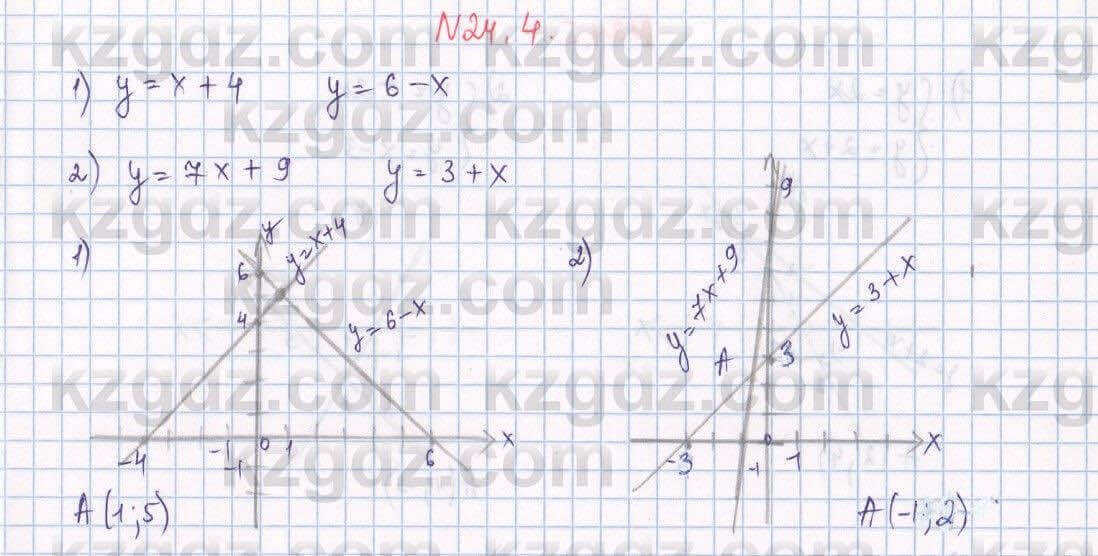 N24.4.
1) y = x + 4   y = 6 - x
2) y = 7x + 9   y = 3 + x
1)
y
6
y=x+4
4
y = 6 - x
-4 -1 0 1 6 x
-1
A(1;5)
2)
9
y = 7x + 9
y = 3 + x
A
3
-3 0 1 x
-1
A(-1;2)
kzgdz.com